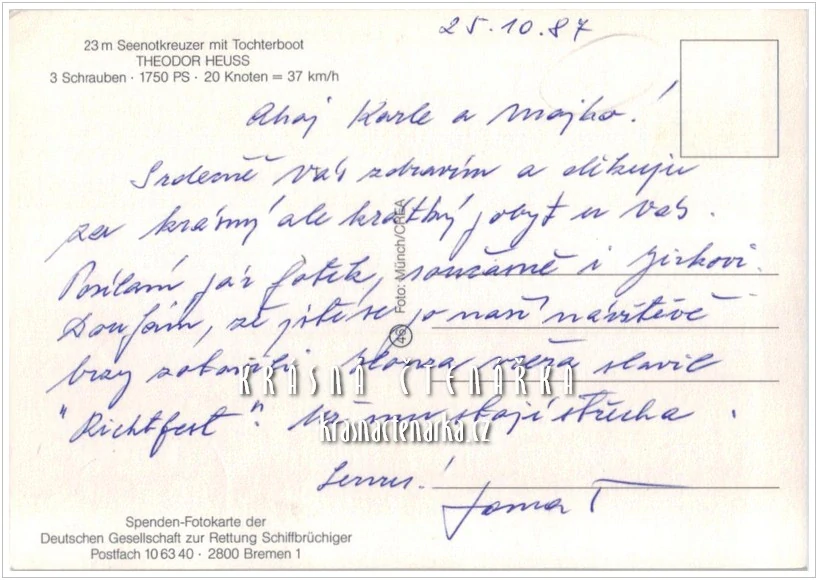 25.10.87
23 m Seenotkreuzer mit Tochterboot
THEODOR HEUSS
3 Schrauben · 1750 PS · 20 Knoten = 37 km/h
Ahoj Karle a Majko!
Srdečně vás zdravím a děkuju
za krásný ale krátký pobyt u vás.
Posílám pár fotek, současně i Jirkovi.
Doufám, že jste se po naší návštěvě
brzy zotavili. Honza včera slavil
"Richtfest". Už mu stojí střecha.
Servus!
Foto: Münch/CREA
46
KRÁSNÁ ČTENÁŘKA
krasnactenarka.cz
Spenden-Fotokarte der
Deutschen Gesellschaft zur Rettung Schiffbrüchiger
Postfach 10 63 40 · 2800 Bremen 1